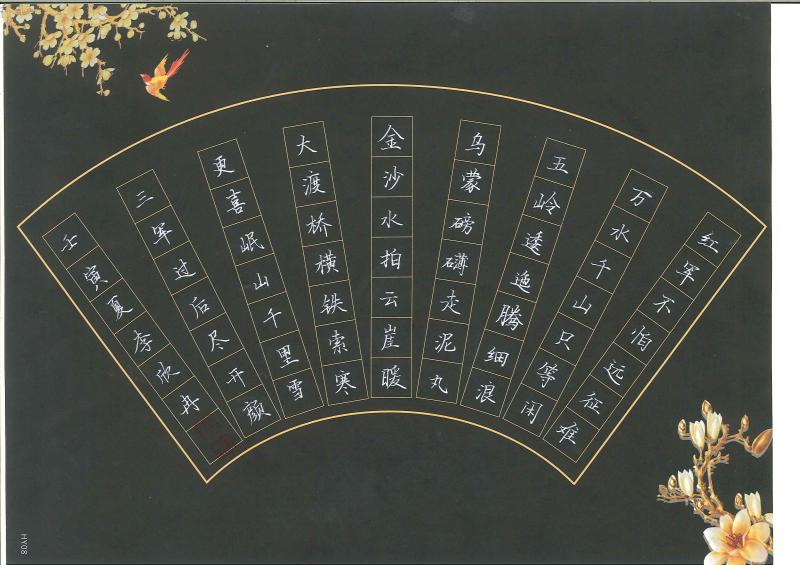 红军不怕远征难
万水千山只等闲
五岭逶迤腾细浪
乌蒙磅礴走泥丸
金沙水拍云崖暖
大渡桥横铁索寒
更喜岷山千里雪
三军过后尽开颜
壬寅夏李欣冉
HY08